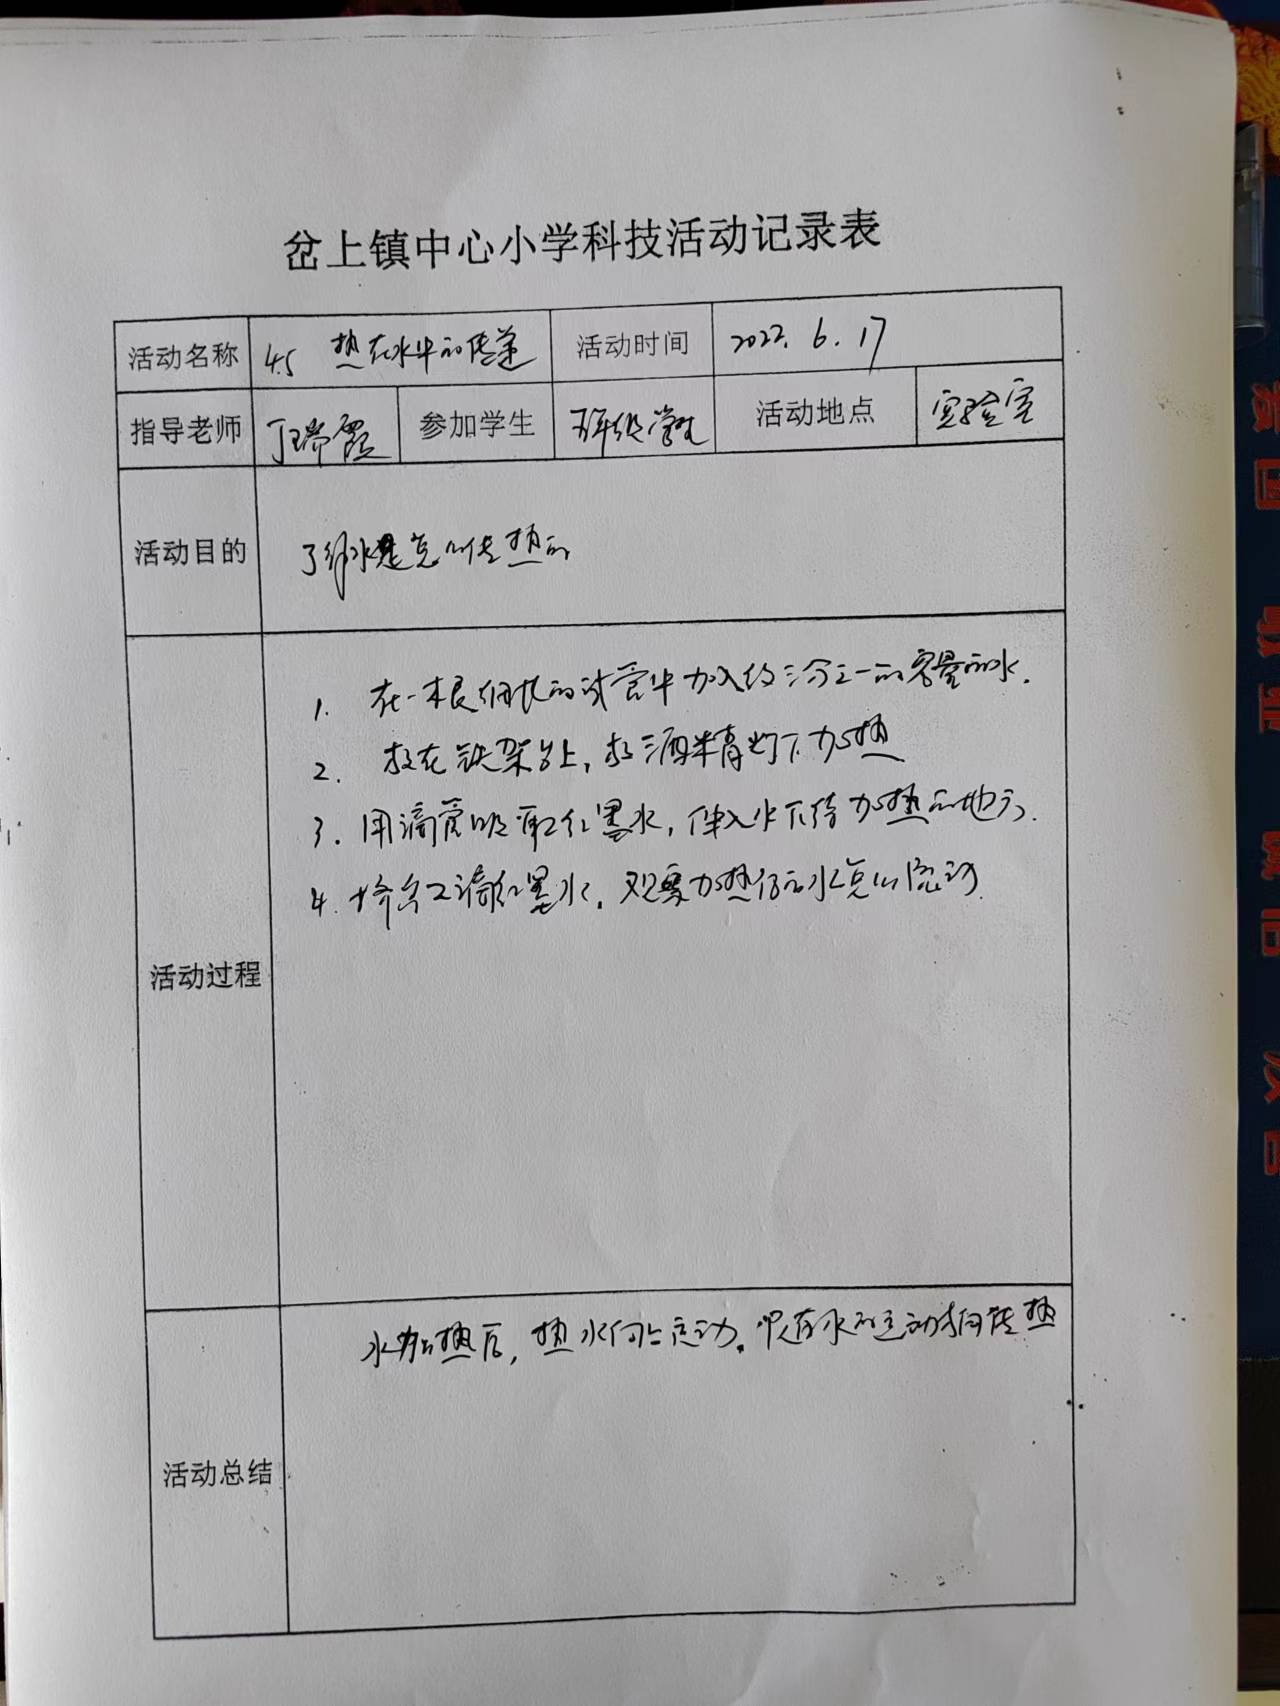 岔上镇中心小学科技活动记录表
活动名称 4.5 热在水中的传递 活动时间 2022. 6. 17
指导老师 丁瑞霞 参加学生 五年级学生 活动地点 实验室
活动目的 了解水是怎么传热的
活动过程
1. 在一根细长的试管中加入约三分之一的容量的水.
2. 放在铁架台上,在酒精灯下加热
3. 用滴管吸取红墨水,伸入水下待加热的地方.
4. 挤出一滴红墨水,观察加热后的水怎么流动.
活动总结 水加热后,热水向上运动。只有水的运动才向传热